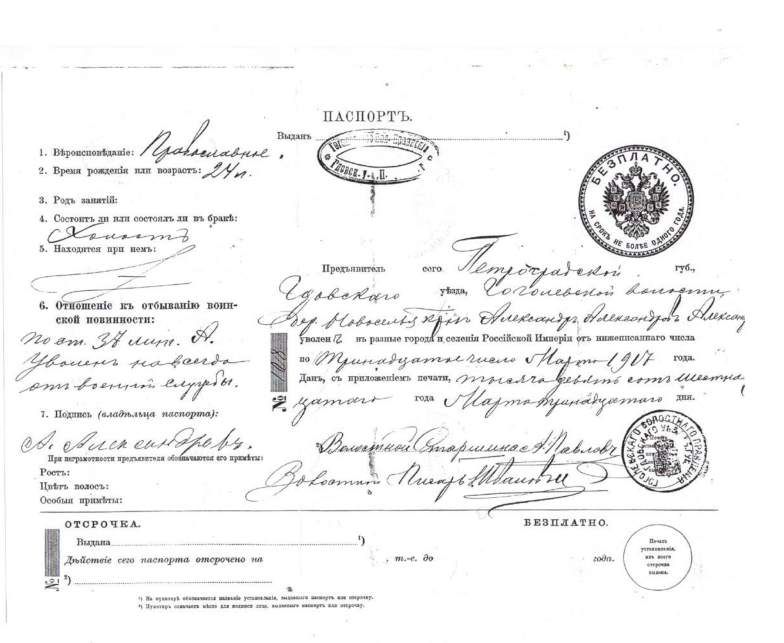 ПАСПОРТЪ.
Выданъ ¹)
1. Вѣроисповѣданіе: Православное.
2. Время рожденія или возрастъ: 24 л.
3. Родъ занятій:
4. Состоитъ ли или состоялъ ли въ бракѣ:
Холостъ
5. Находится при немъ:
БЕЗПЛАТНО.
НА СРОКЪ НЕ БОЛѢЕ ОДНОГО ГОДА.
Предъявитель сего Петроградской губ.,
Гдовскаго уѣзда, Гоголевской волости,
дер. Новоселья Александръ Александровъ Александ
уволенъ въ разные города и селенія Россійской Имперіи отъ нижеписаннаго числа
по тринадцатое число Марта 1917 года.
Данъ, съ приложеніемъ печати, тысяча девять сотъ шестна
дцатаго года Марта тринадцатаго дня.
6. Отношеніе къ отбыванію воин-
ской повинности:
по ст. 37 лит. А.
Уволенъ навсегда
отъ военной службы.
№
7. Подпись (владѣльца паспорта):
А. Александровъ
При неграмотности предъявителя обозначаются его примѣты:
Ростъ:
Цвѣтъ волосъ:
Особыя примѣты:
²) Волостной Старшина А. Павловъ
Волостной Писарь
ГОГОЛЕВСКАГО ВОЛОСТНАГО ПРАВЛЕНІЯ
ГДОВСКАГО УѢЗ.
ОТСРОЧКА.
БЕЗПЛАТНО.
Выдана ¹)
Дѣйствіе сего паспорта отсрочено на , т.-е. до года.
№ ²)
Печать
установленія,
изъ коего
отсрочка
выдана.
¹) На пунктирѣ обозначается названіе установленія, выдавшаго паспортъ или отсрочку.
²) Пунктиръ означаетъ мѣсто для подписи лица, выдавшаго паспортъ или отсрочку.